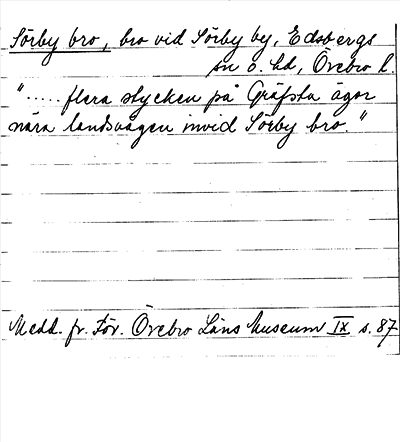 Sörby bro, bro vid Sörby by, Edsbergs
sn o. hd, Örebro l.
"..... flera stycken på Gräfsta ägor
nära landsvägen invid Sörby bro."
Medd. fr. För. Örebro Läns Museum IX s. 87